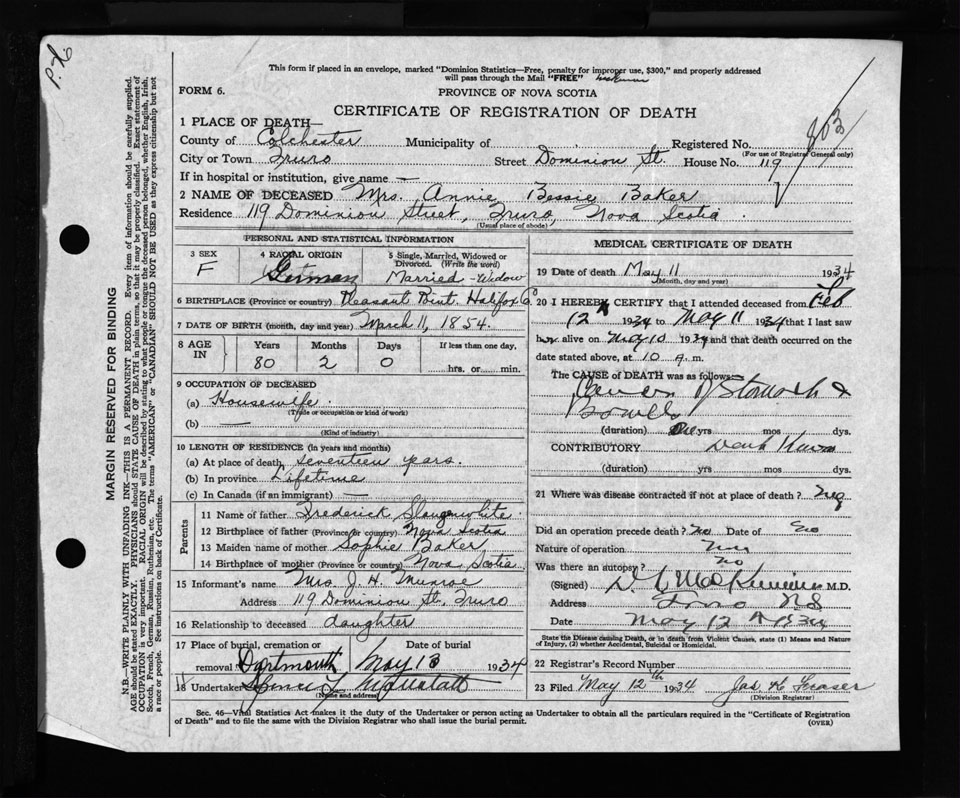 P.X
This form if placed in an envelope, marked "Dominion Statistics—Free, penalty for improper use, $300," and properly addressed
will pass through the Mail "FREE"
FORM 6.
PROVINCE OF NOVA SCOTIA
CERTIFICATE OF REGISTRATION OF DEATH
803
1 PLACE OF DEATH—
County of Colchester Municipality of Registered No.
(For use of Registrar General only)
City or Town Truro Street Dominion St. House No. 119
If in hospital or institution, give name —
2 NAME OF DECEASED Mrs. Annie Bessie Baker
Residence 119 Dominion Street, Truro, Nova Scotia.
(Usual place of abode)
PERSONAL AND STATISTICAL INFORMATION
3 SEX F
4 RACIAL ORIGIN German
5 Single, Married, Widowed or Divorced. (Write the word) Married - Widow
6 BIRTHPLACE (Province or country) Pleasant Point. Halifax Co
7 DATE OF BIRTH (month, day and year) March 11, 1854.
8 AGE IN Years 80 Months 2 Days 0 If less than one day, hrs. or min.
9 OCCUPATION OF DECEASED
(a) Housewife.
(Trade or occupation or kind of work)
(b) —
(Kind of industry)
10 LENGTH OF RESIDENCE (in years and months)
(a) At place of death seventeen years.
(b) In province Lifetime
(c) In Canada (if an immigrant) —
Parents
11 Name of father Frederick Slaugenwhite
12 Birthplace of father (Province or country) Nova Scotia
13 Maiden name of mother Sophie Baker,
14 Birthplace of mother (Province or country) Nova Scotia
15 Informant's name Mrs. J. H. Munroe
Address 119 Dominion St, Truro
16 Relationship to deceased daughter
17 Place of burial, cremation or removal Dartmouth Date of burial May 13 1934
18 Undertaker
(Name and address)
MEDICAL CERTIFICATE OF DEATH
19 Date of death May 11 1934
(Month, day and year)
20 I HEREBY CERTIFY that I attended deceased from Feb
12th 1934 to May 11 1934 that I last saw
her alive on May 10 1934 and that death occurred on the
date stated above, at 10 a. m.
The CAUSE OF DEATH was as follows:—
Cancer of Stomach &
Bowells
(duration) one yrs mos dys.
CONTRIBUTORY
(duration) yrs mos dys.
21 Where was disease contracted if not at place of death?
Did an operation precede death? no Date of no
Nature of operation
Was there an autopsy? no
(Signed) M.D.
Address Truro N.S
Date May 12th 1934
State the Disease causing Death, or in death from Violent Causes, state (1) Means and Nature
of Injury, (2) whether Accidental, Suicidal or Homicidal.
22 Registrar's Record Number
23 Filed May 12th 1934 Jas K Fraser
(Division Registrar)
Sec. 46—Vital Statistics Act makes it the duty of the Undertaker or person acting as Undertaker to obtain all the particulars required in the "Certificate of Registration
of Death" and to file the same with the Division Registrar who shall issue the burial permit.
(OVER)
MARGIN RESERVED FOR BINDING
N.B.—WRITE PLAINLY WITH UNFADING INK—THIS IS A PERMANENT RECORD. Every item of information should be carefully supplied.
AGE should be stated EXACTLY. PHYSICIANS should STATE CAUSE OF DEATH in plain terms, so that it may be properly classified. Exact statement of
OCCUPATION is very important. RACIAL ORIGIN will be described by stating to what people or tongue the deceased person belonged, whether English, Irish,
Scotch, French, German, Russian, Ruthenian, etc. The terms "AMERICAN" or "CANADIAN" SHOULD NOT BE USED as they express citizenship but not
a race or people. See instructions on back of Certificate.